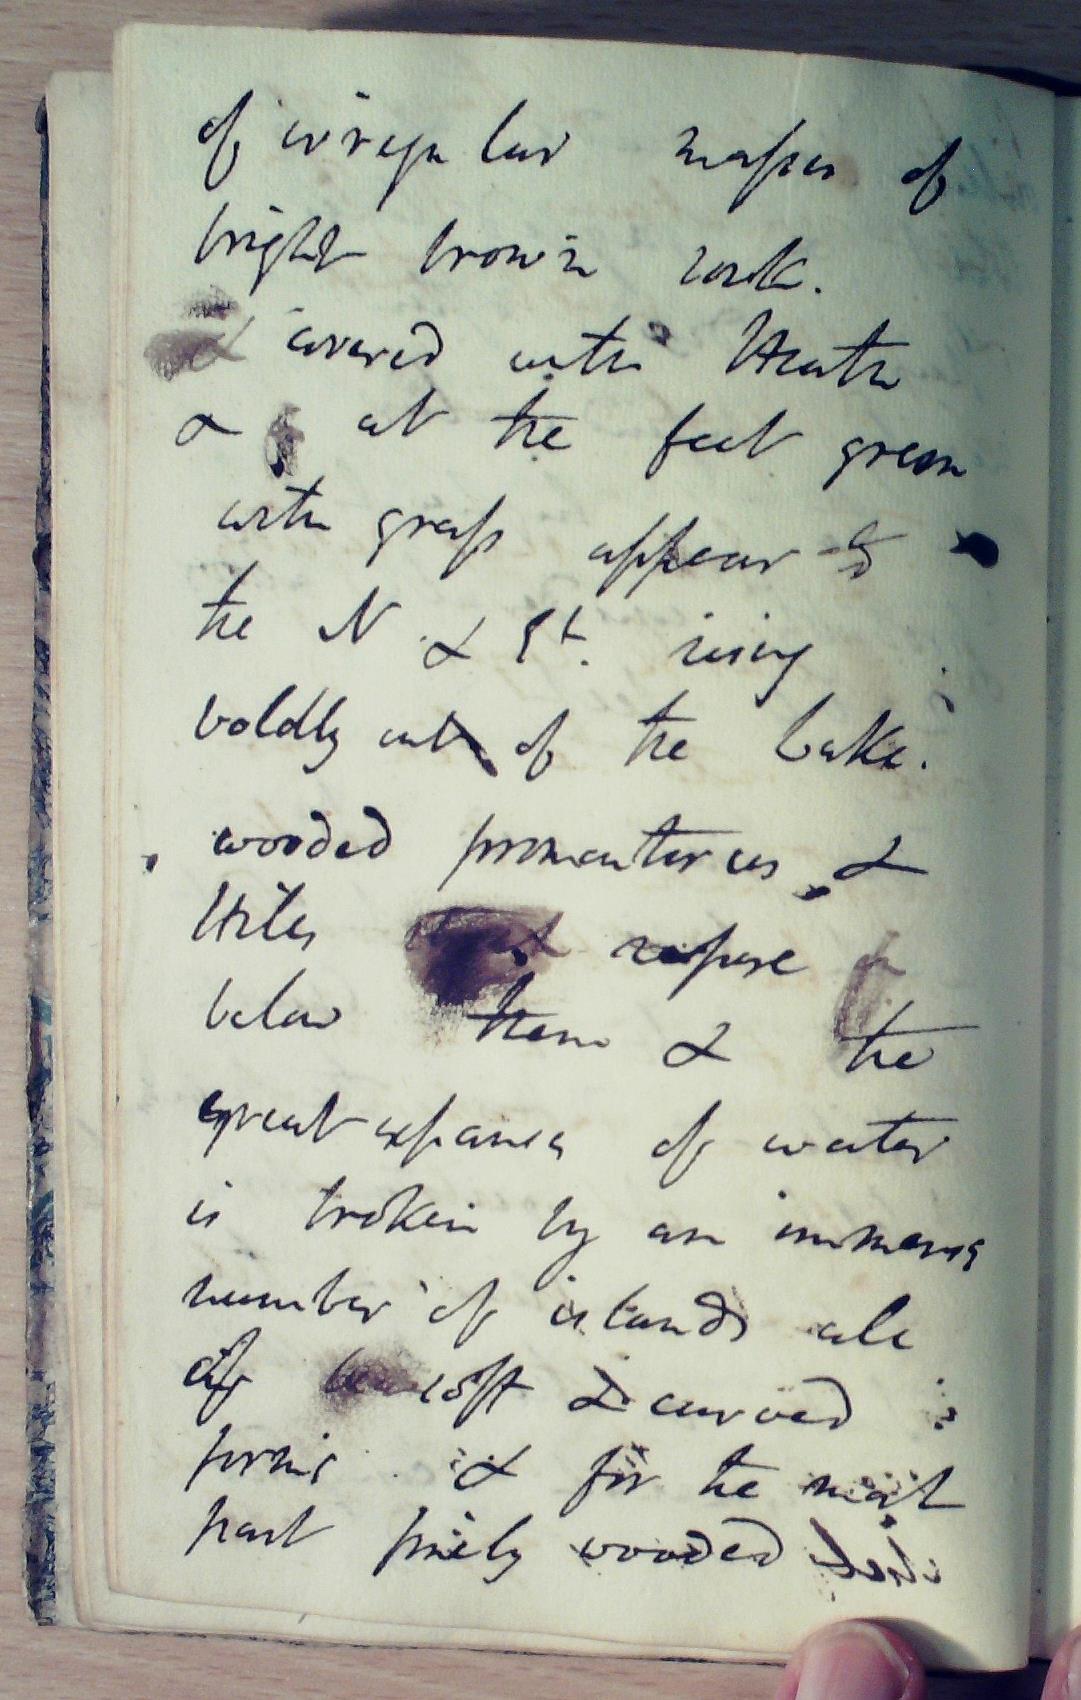 of irregular masses of
bright brown rock.
& covered with Heath
& at the feet green
with grass appear to
the N. & Et. rising
boldly out of the Lake.
wooded promontories &
Hills repose
below them & the
great expanse of water
is broken by an immense
number of islands all
of soft & curved
forms. & for the most
part finely wooded